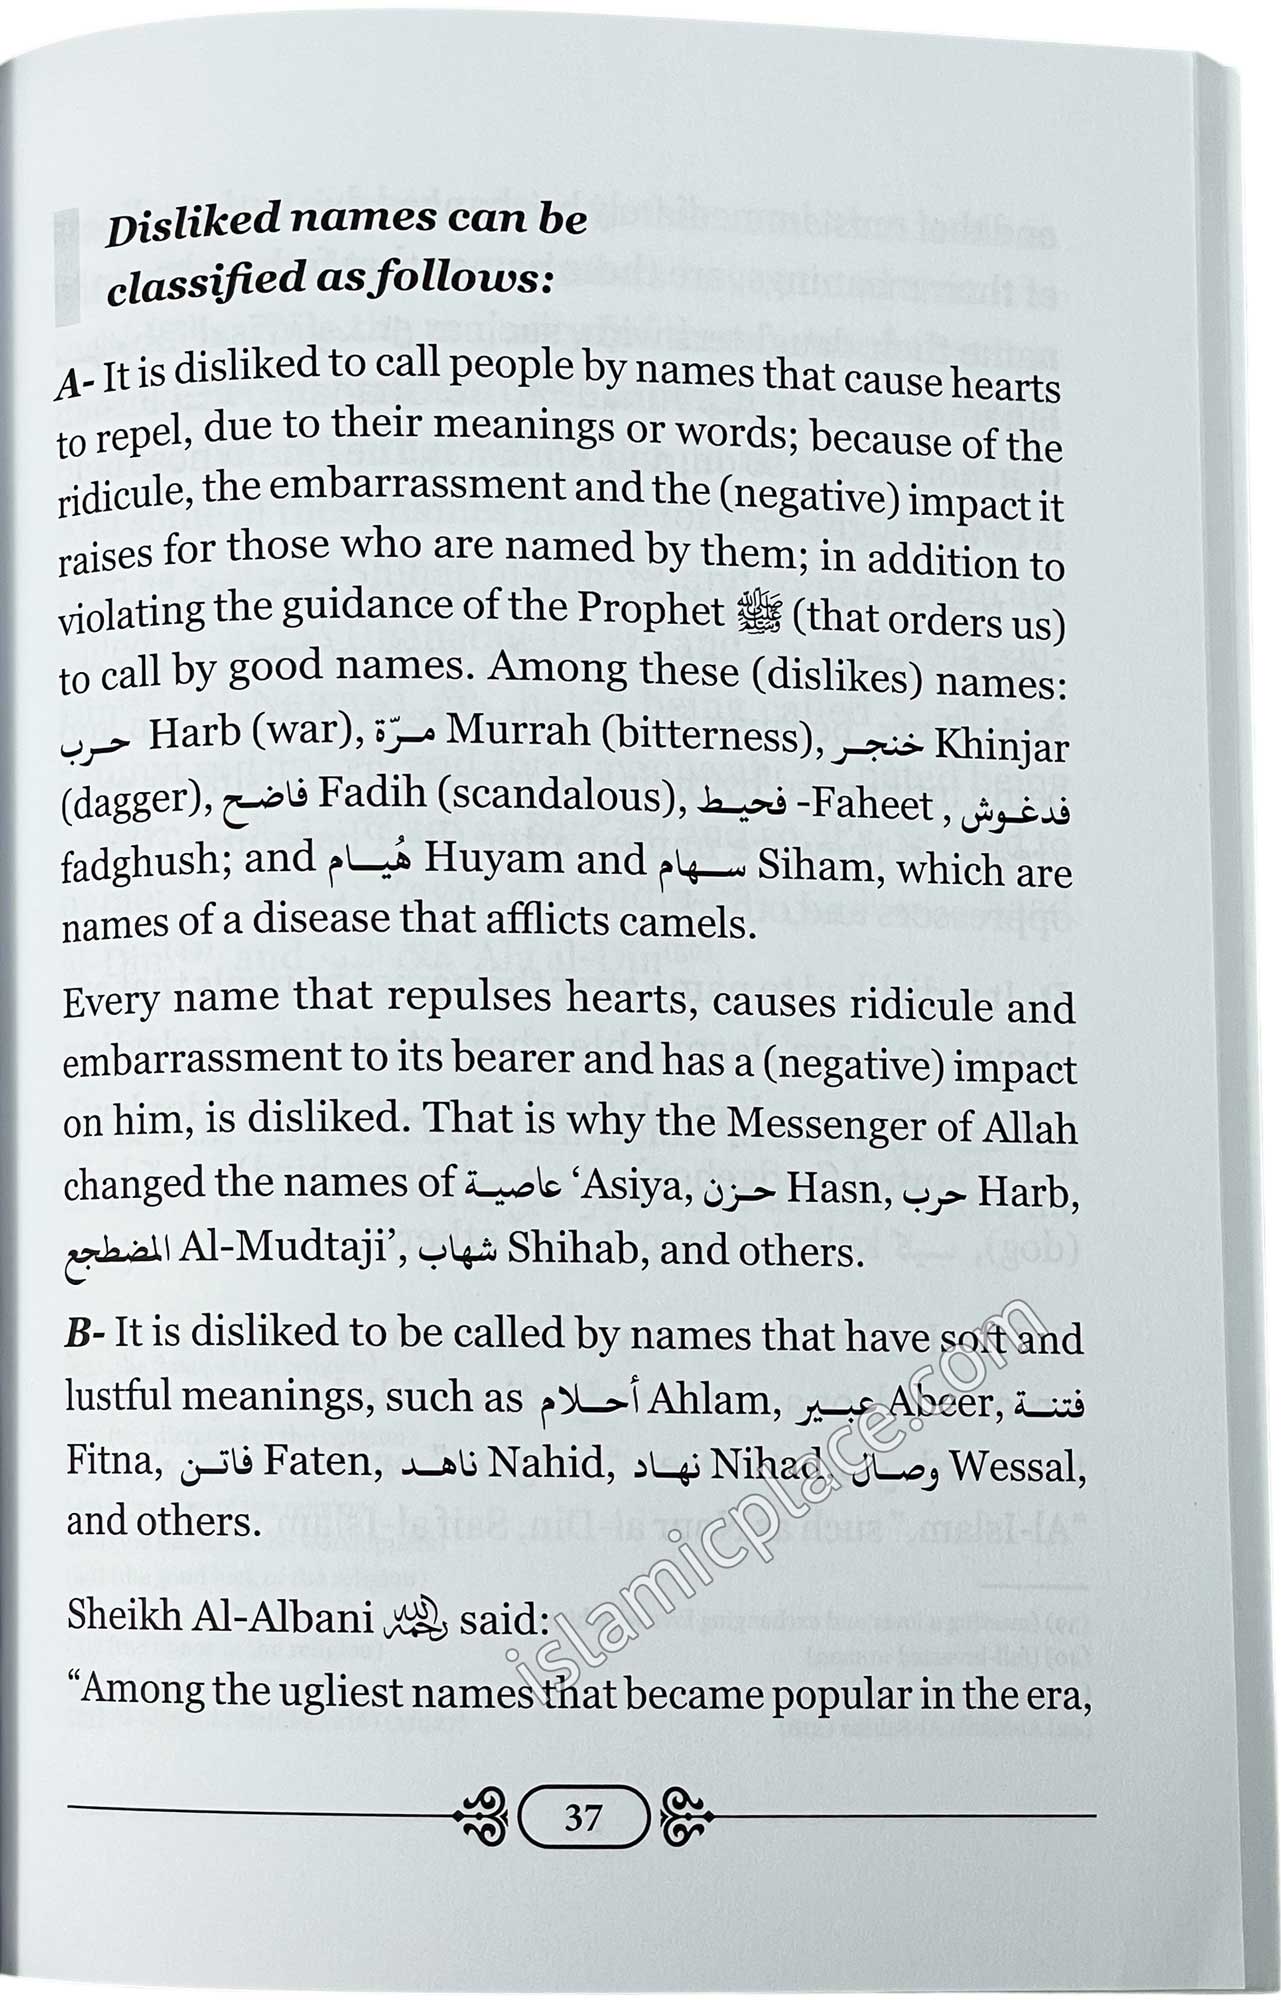 Disliked names can be
classified as follows:
A- It is disliked to call people by names that cause hearts
to repel, due to their meanings or words; because of the
ridicule, the embarrassment and the (negative) impact it
raises for those who are named by them; in addition to
violating the guidance of the Prophet ﷺ (that orders us)
to call by good names. Among these (dislikes) names:
حرب Harb (war), مرّة Murrah (bitterness), خنجر Khinjar
(dagger), فاضح Fadih (scandalous), فحيط -Faheet , فدغوش
fadghush; and هُيام Huyam and سهام Siham, which are
names of a disease that afflicts camels.
Every name that repulses hearts, causes ridicule and
embarrassment to its bearer and has a (negative) impact
on him, is disliked. That is why the Messenger of Allah
changed the names of عاصية ‘Asiya, حزن Hasn, حرب Harb,
المضطجع Al-Mudtaji’, شهاب Shihab, and others.
B- It is disliked to be called by names that have soft and
lustful meanings, such as أحلام Ahlam, عبير Abeer, فتنة
Fitna, فاتن Faten, ناهد Nahid, نهاد Nihad, وصال Wessal,
and others.
Sheikh Al-Albani رحمه الله said:
“Among the ugliest names that became popular in the era,
37
islamicplace.com